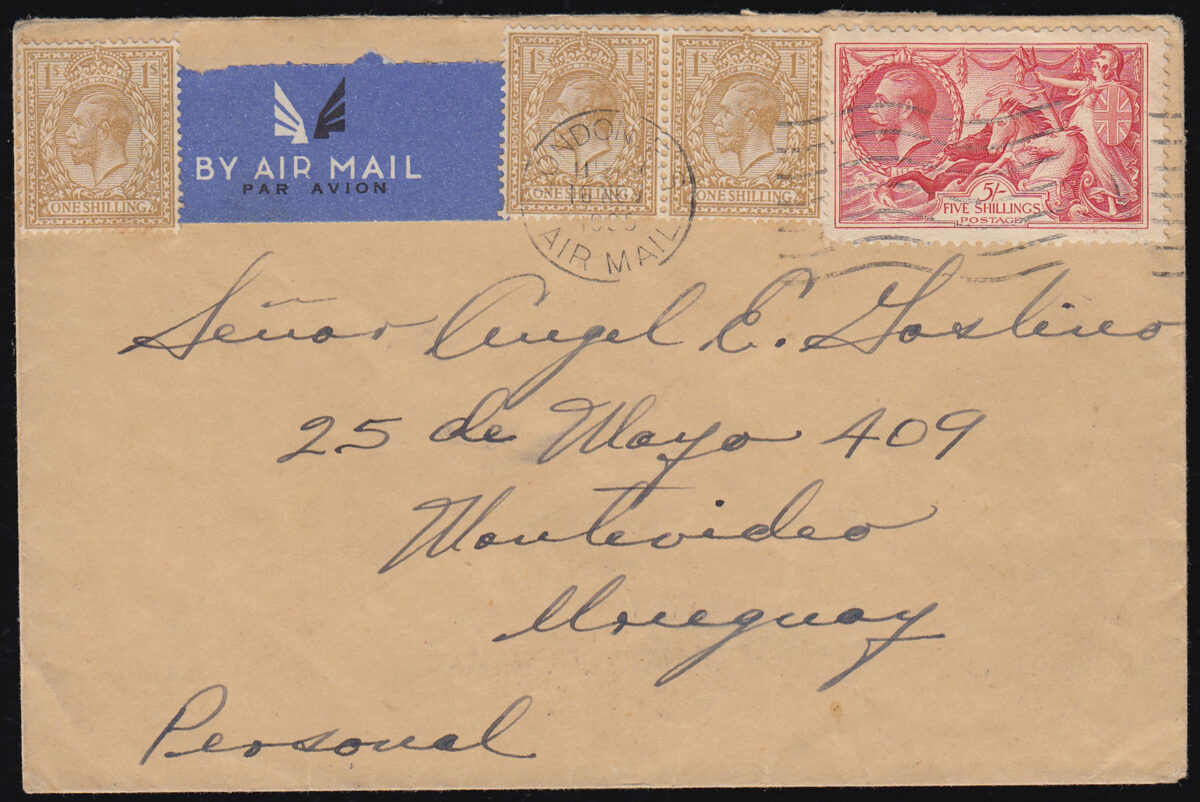 1S 1S
ONE SHILLING
BY AIR MAIL
PAR AVION
1S 1S
ONE SHILLING
1S 1S
ONE SHILLING
LONDON
AIR MAIL
5/-
FIVE SHILLINGS
POSTAGE
Señor Angel E. Gostino
25 de Mayo 409
Montevideo
Uruguay
Personal